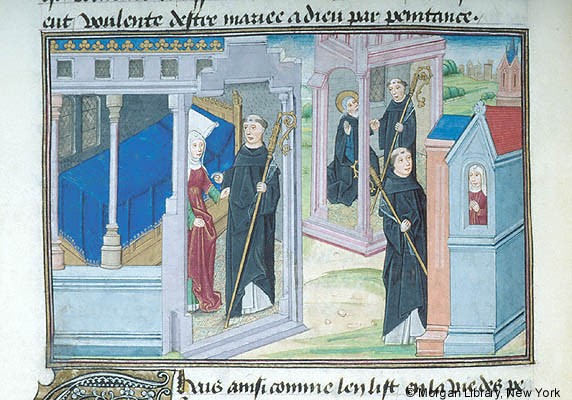 eut voulente destre mariee a dieu par penitance.
Hous ainsi comme len list en la vie des pe
© Morgan Library, New York